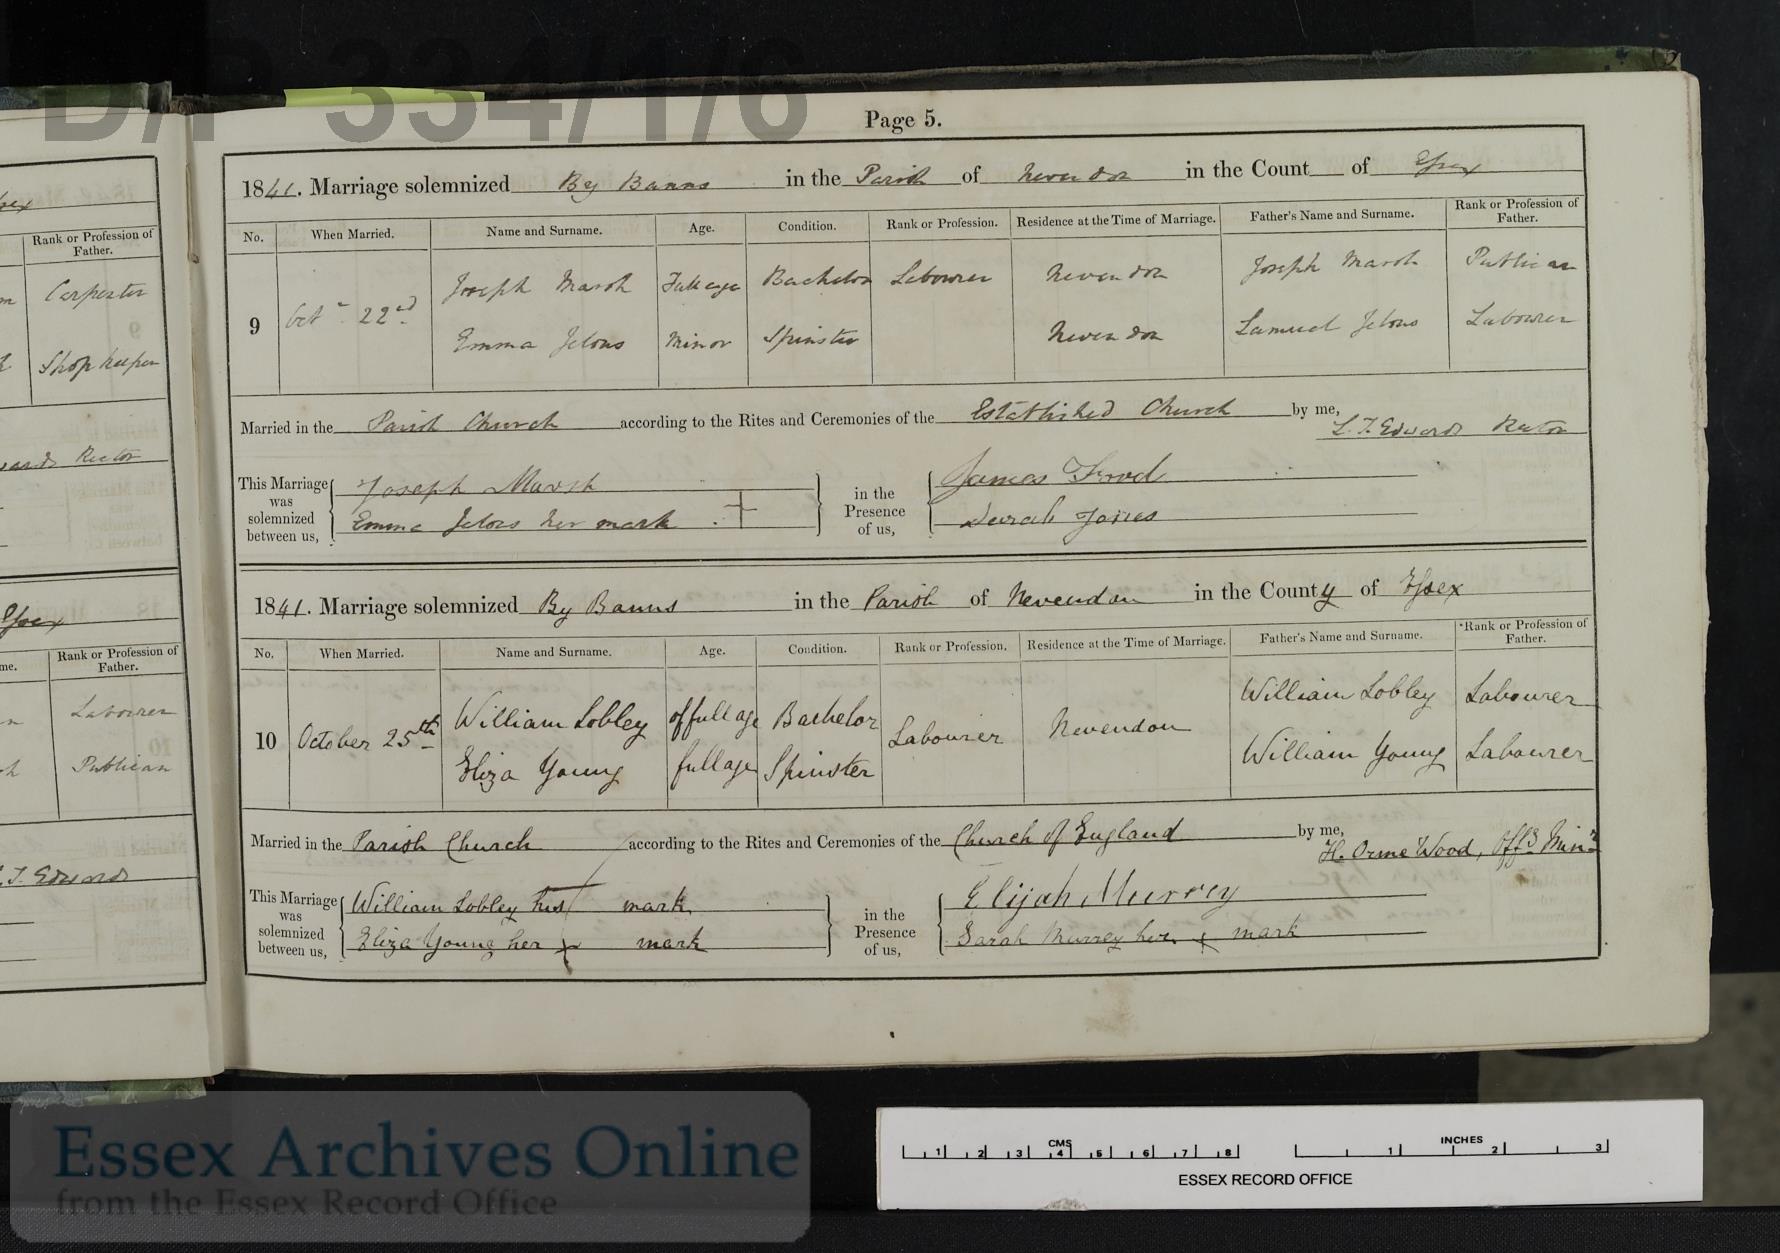 D/P 334/1/6
Page 5.
1841. Marriage solemnized By Banns in the Parish of Nevendon in the Count of Essex
No. When Married. Name and Surname. Age. Condition. Rank or Profession. Residence at the Time of Marriage. Father's Name and Surname. Rank or Profession of Father.
9 Octr 22nd Joseph Marsh Full age Bachelor Labourer Nevendon Joseph Marsh Publican
Emma Jelous Minor Spinster Nevendon Samuel Jelous Labourer
Married in the Parish Church according to the Rites and Ceremonies of the Established Church by me, L. T. Edwards Rector
This Marriage was solemnized between us, Joseph Marsh in the Presence of us, James Frod
Emma Jelous her mark + Sarah Jones
1841. Marriage solemnized By Banns in the Parish of Nevendon in the County of Essex
No. When Married. Name and Surname. Age. Condition. Rank or Profession. Residence at the Time of Marriage. Father's Name and Surname. Rank or Profession of Father.
10 October 25th William Lobley of full age Bachelor Labourer Nevendon William Lobley Labourer
Eliza Young full age Spinster William Young Labourer
Married in the Parish Church according to the Rites and Ceremonies of the Church of England by me, H. Orme Wood, Offg Minr
This Marriage was solemnized between us, William Lobley his mark in the Presence of us, Elijah Murrey
Eliza Young her x mark Sarah Murrey her x mark
Essex
Rank or Profession of Father.
Carpenter
Shop keeper
Rector
Essex
Rank or Profession of Father.
Labourer
Publican
T. Edwards
Essex Archives Online
from the Essex Record Office
CMS
1 2 3 4 5 6 7 8
INCHES
1 2 3
ESSEX RECORD OFFICE